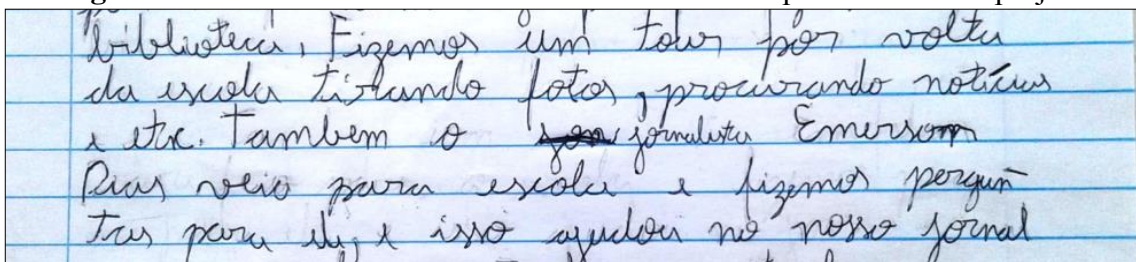 biblioteca, Fizemos um tour por volta
da escola tirando fotos, procurando notícias
e etc. Tambem o jornalista Emerson
Dias veio para escola e fizemos pergun
tas para ele, e isso ajudou no nosso jornal